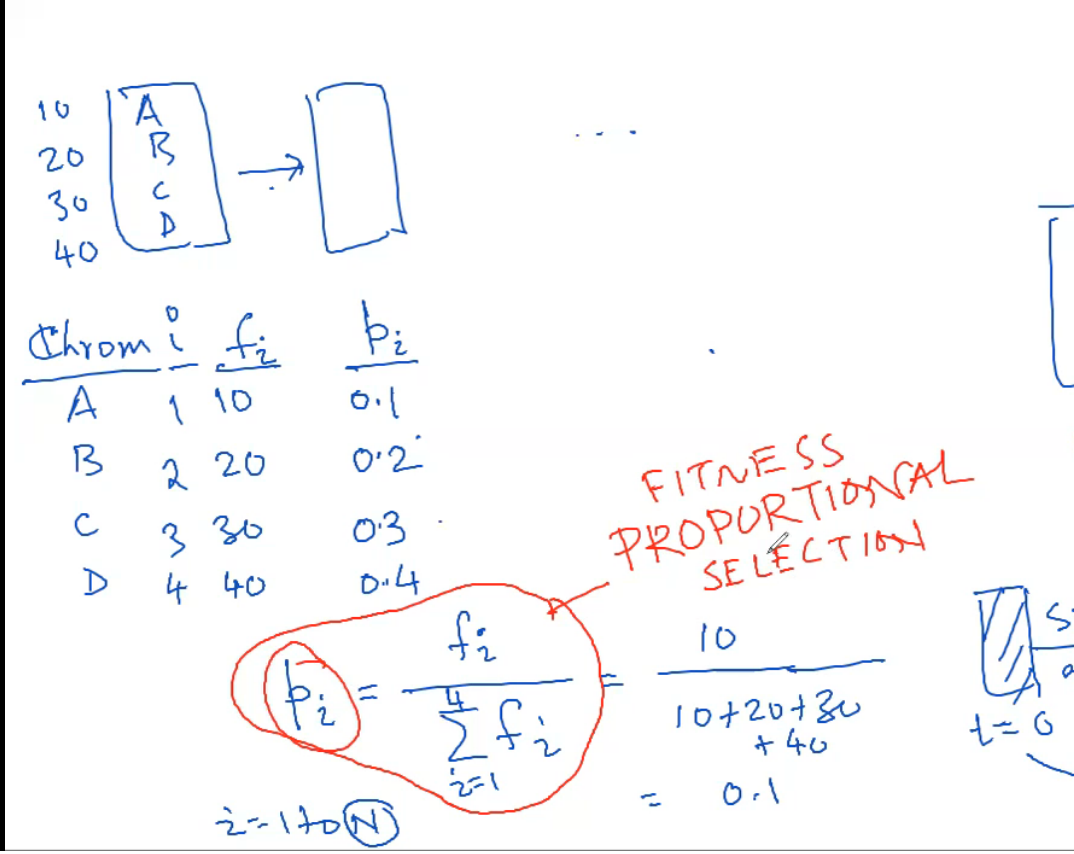 10 A
20 B
30 C
40 D
...
Chrom i fi pi
A 1 10 0.1
B 2 20 0.2
C 3 30 0.3
D 4 40 0.4
FITNESS
PROPORTIONAL
SELECTION
pi = fi / 4 Σ i=1 fi = 10 / 10+20+30+40
= 0.1
i=1 to N
t=0